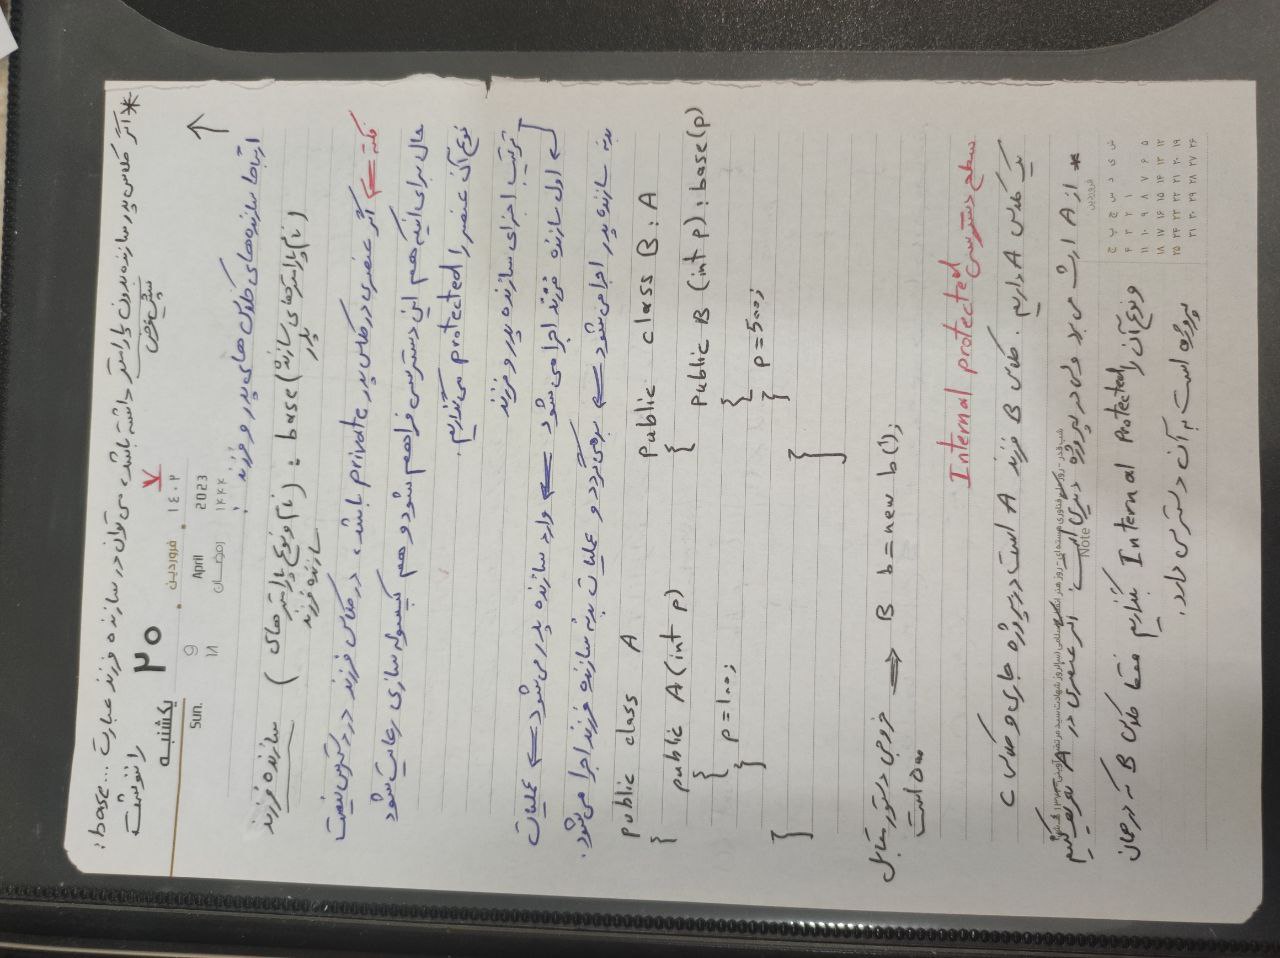 * اگر کلاس پدر سازنده بدون پارامتر داشته باشد، می‌توان در سازنده فرزند عبارت ...base :
پیش‌فرض
را ننوشت
۷
۲۰
یکشنبه
فروردین
۱۴۰۲
Sun.
9
April
2023
۱۸
رمضان
۱۴۴۴
ارتباط سازنده‌های کلاس های پدر و فرزند :
سازنده فرزند (نام و نوع پارامترهای سازنده فرزند) : base(نام پارامترهای سازنده پدر)
نکته ← اگر عنصری در کلاس پدر private باشد، در کلاس فرزند در دسترس نیست
حال برای اینکه هم این دسترسی فراهم شود و هم کپسوله سازی رعایت شود
نوع آن عنصر را protected می‌گذاریم.
ترتیب اجرای سازنده پدر و فرزند
اول سازنده فرزند اجرا می‌شود ← وارد سازنده پدر می‌شود ← عملیات
بدنه سازنده پدر اجرا می‌شود ← برمی‌گردد و عملیات بدنه سازنده فرزند اجرا می‌شود.
public class A
{
public A(int p)
{
p=100;
}
}
public class B : A
{
public B (int p) : base(p)
{
p=500;
}
}
خروجی دستور مقابل ⇒ B b=new b(1);
۵۰۰ است
سطح دسترسی Internal protected
یک کلاس A داریم. کلاس B فرزند A است در پروژه جاری و کلاس C
شب قدر - روز ملی فناوری هسته ای - روز هنر انقلاب اسلامی (سالروز شهادت سید مرتضی آوینی - ۱۳۷۲ هـ.ش)
* از A ارث می برد ولی در پروژه دیگری است. اگر عنصری در A تعریف کنیم
Note
و نوع آن را Internal Protected بگذاریم فقط کلاس B که در همان
پروژه است به آن دسترسی دارد.
فروردین
ش ی د س چ پ ج
۱ ۲ ۳ ۴
۵ ۶ ۷ ۸ ۹ ۱۰ ۱۱
۱۲ ۱۳ ۱۴ ۱۵ ۱۶ ۱۷ ۱۸
۱۹ ۲۰ ۲۱ ۲۲ ۲۳ ۲۴ ۲۵
۲۶ ۲۷ ۲۸ ۲۹ ۳۰ ۳۱